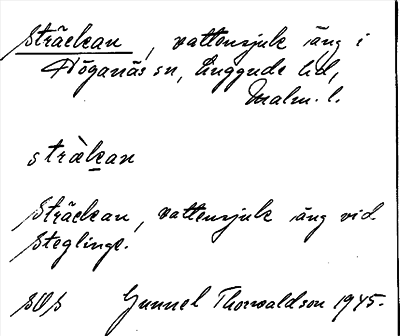 Sträckan, vattensjuk äng i
Höganäs sn, Luggude hd,
Malm. l.
stràkan
Sträckan, vattensjuk äng vid
Steglinge.
sOs Gunnel Thorwaldson 1945.